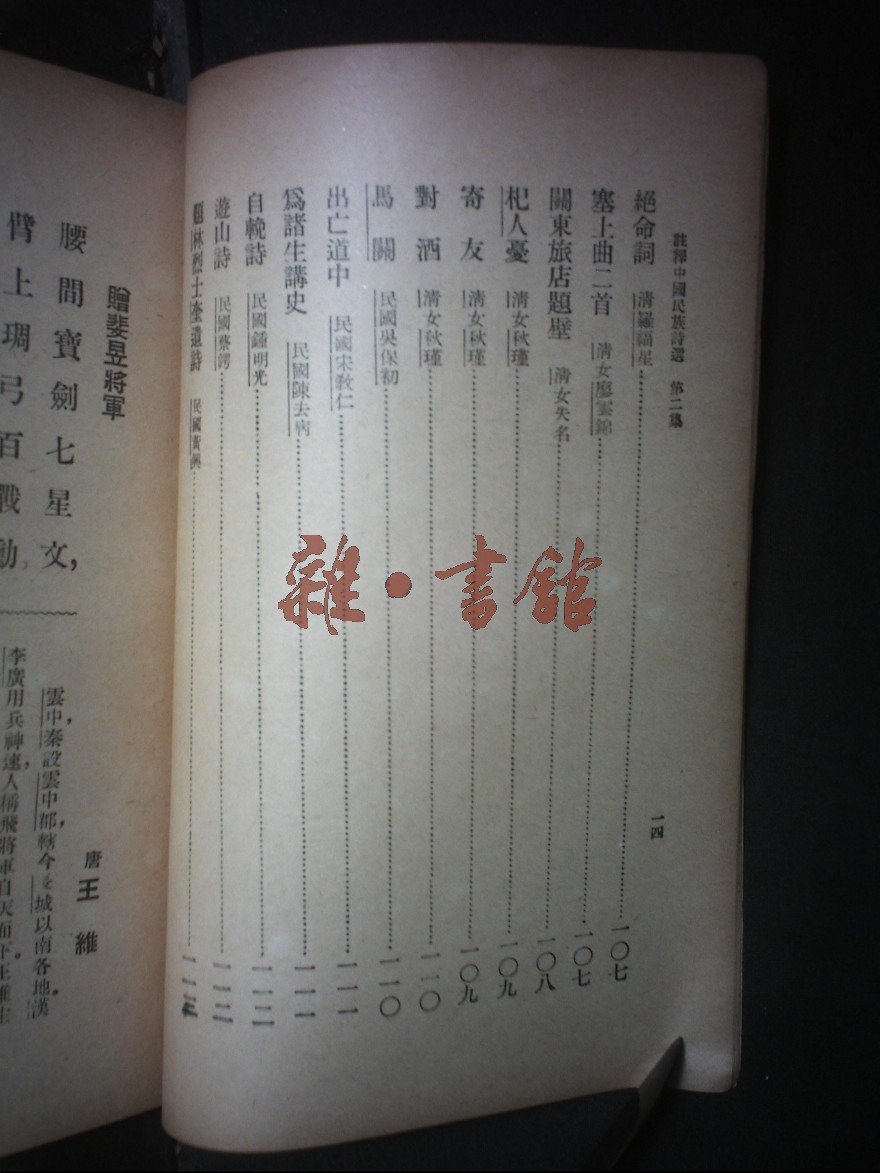 註釋中國民族詩選　第二集
一四
絕命詞　清羅福星……一〇七
塞上曲二首　清女廖雲錦……一〇七
關東旅店題壁　清女失名……一〇八
杞人憂　清女秋瑾……一〇九
寄友　清女秋瑾……一〇九
對酒　清女秋瑾……一一〇
馬關　民國吳保初……一一〇
出亡道中　民國宋敎仁……一一一
爲諸生講史　民國陳去病……一一一
自輓詩　民國鍾明光……一一二
遊山詩　民國蔡鍔……一一二
林烈士奎遺詩　民國黃興……一一三
贈裴旻將軍
唐　王維
腰間寶劍七星文，
臂上琱弓百戰勳。
雲中，秦設雲中郡，轄今　城以南各地。漢
李廣用兵神速，人稱飛將軍自天而下。王維
雜·書館